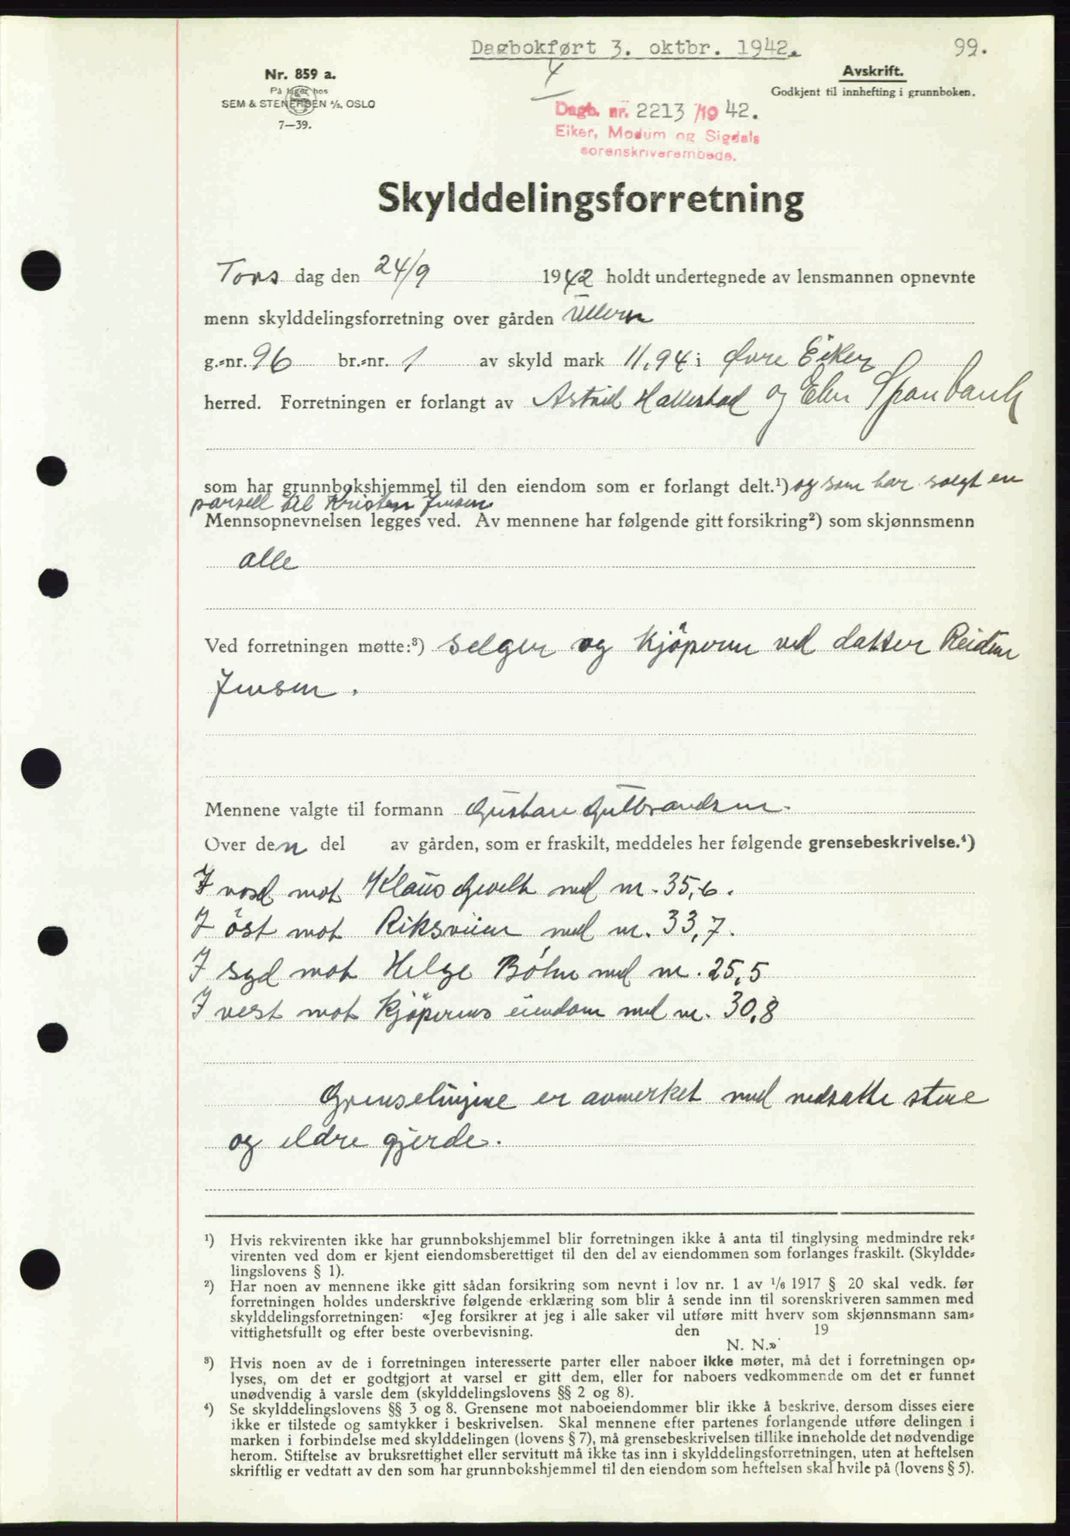 Dagbokført 3. oktbr. 1942. 99.
4
Nr. 859 a.
På lager hos
SEM & STENERSEN A/S, OSLO
7—39.
Avskrift.
Godkjent til innhefting i grunnboken.
Dagb. nr. 2213 /19 42.
Eiker, Modum og Sigdals
sorenskriverembede.
Skylddelingsforretning
Tors dag den 24/9 1942 holdt undertegnede av lensmannen opnevnte
menn skylddelingsforretning over gården Ullern
g.-nr. 96 br.-nr. 1 av skyld mark 11,94 i Øvre Eiker
herred. Forretningen er forlangt av Astrid Hallestad og
som har grunnbokshjemmel til den eiendom som er forlangt delt.¹) og som har solgt en
parsell til Kristen Jensen
Mennsopnevnelsen legges ved. Av mennene har følgende gitt forsikring²) som skjønnsmenn
alle
Ved forretningen møtte:³) selger og kjöperen ved datter Reidun
Jensen.
Mennene valgte til formann Gustav Gulbrandsen.
Over den del av gården, som er fraskilt, meddeles her følgende grensebeskrivelse.⁴)
I nord mot Klaus med m. 35,6.
I öst mot Riksveien med m. 33,7.
I syd mot Helge Böhn med m. 25,5
I vest mot kjöperens eiendom med m. 30,8
Grenselinjene er avmerket med nedsatte stene
og eldre gjerde.
¹) Hvis rekvirenten ikke har grunnbokshjemmel blir forretningen ikke å anta til tinglysing medmindre rek-
virenten ved dom er kjent eiendomsberettiget til den del av eiendommen som forlanges fraskilt. (Skyldde-
lingslovens § 1).
²) Har noen av mennene ikke gitt sådan forsikring som nevnt i lov nr. 1 av 1/6 1917 § 20 skal vedk. før
forretningen holdes underskrive følgende erklæring som blir å sende inn til sorenskriveren sammen med
skylddelingsforretningen: «Jeg forsikrer at jeg i alle saker vil utføre mitt hverv som skjønnsmann sam-
vittighetsfullt og efter beste overbevisning. den 19
N. N.»
³) Hvis noen av de i forretningen interesserte parter eller naboer ikke møter, må det i forretningen op-
lyses, om det er godtgjort at varsel er gitt dem, eller for naboers vedkommende om det er funnet
unødvendig å varsle dem (skylddelingslovens §§ 2 og 8).
⁴) Se skylddelingslovens §§ 3 og 8. Grensene mot naboeiendommer blir ikke å beskrive, dersom disses eiere
ikke er tilstede og samtykker i beskrivelsen. Skal mennene efter partenes forlangende utføre delingen i
marken i forbindelse med skylddelingen (lovens § 7), må grensebeskrivelsen tillike inneholde det nødvendige
herom. Stiftelse av bruksrettighet eller servitutt må ikke tas inn i skylddelingsforretningen, uten at heftelsen
skriftlig er vedtatt av den som har grunnbokshjemmel til den eiendom som heftelsen skal hvile på (lovens § 5).